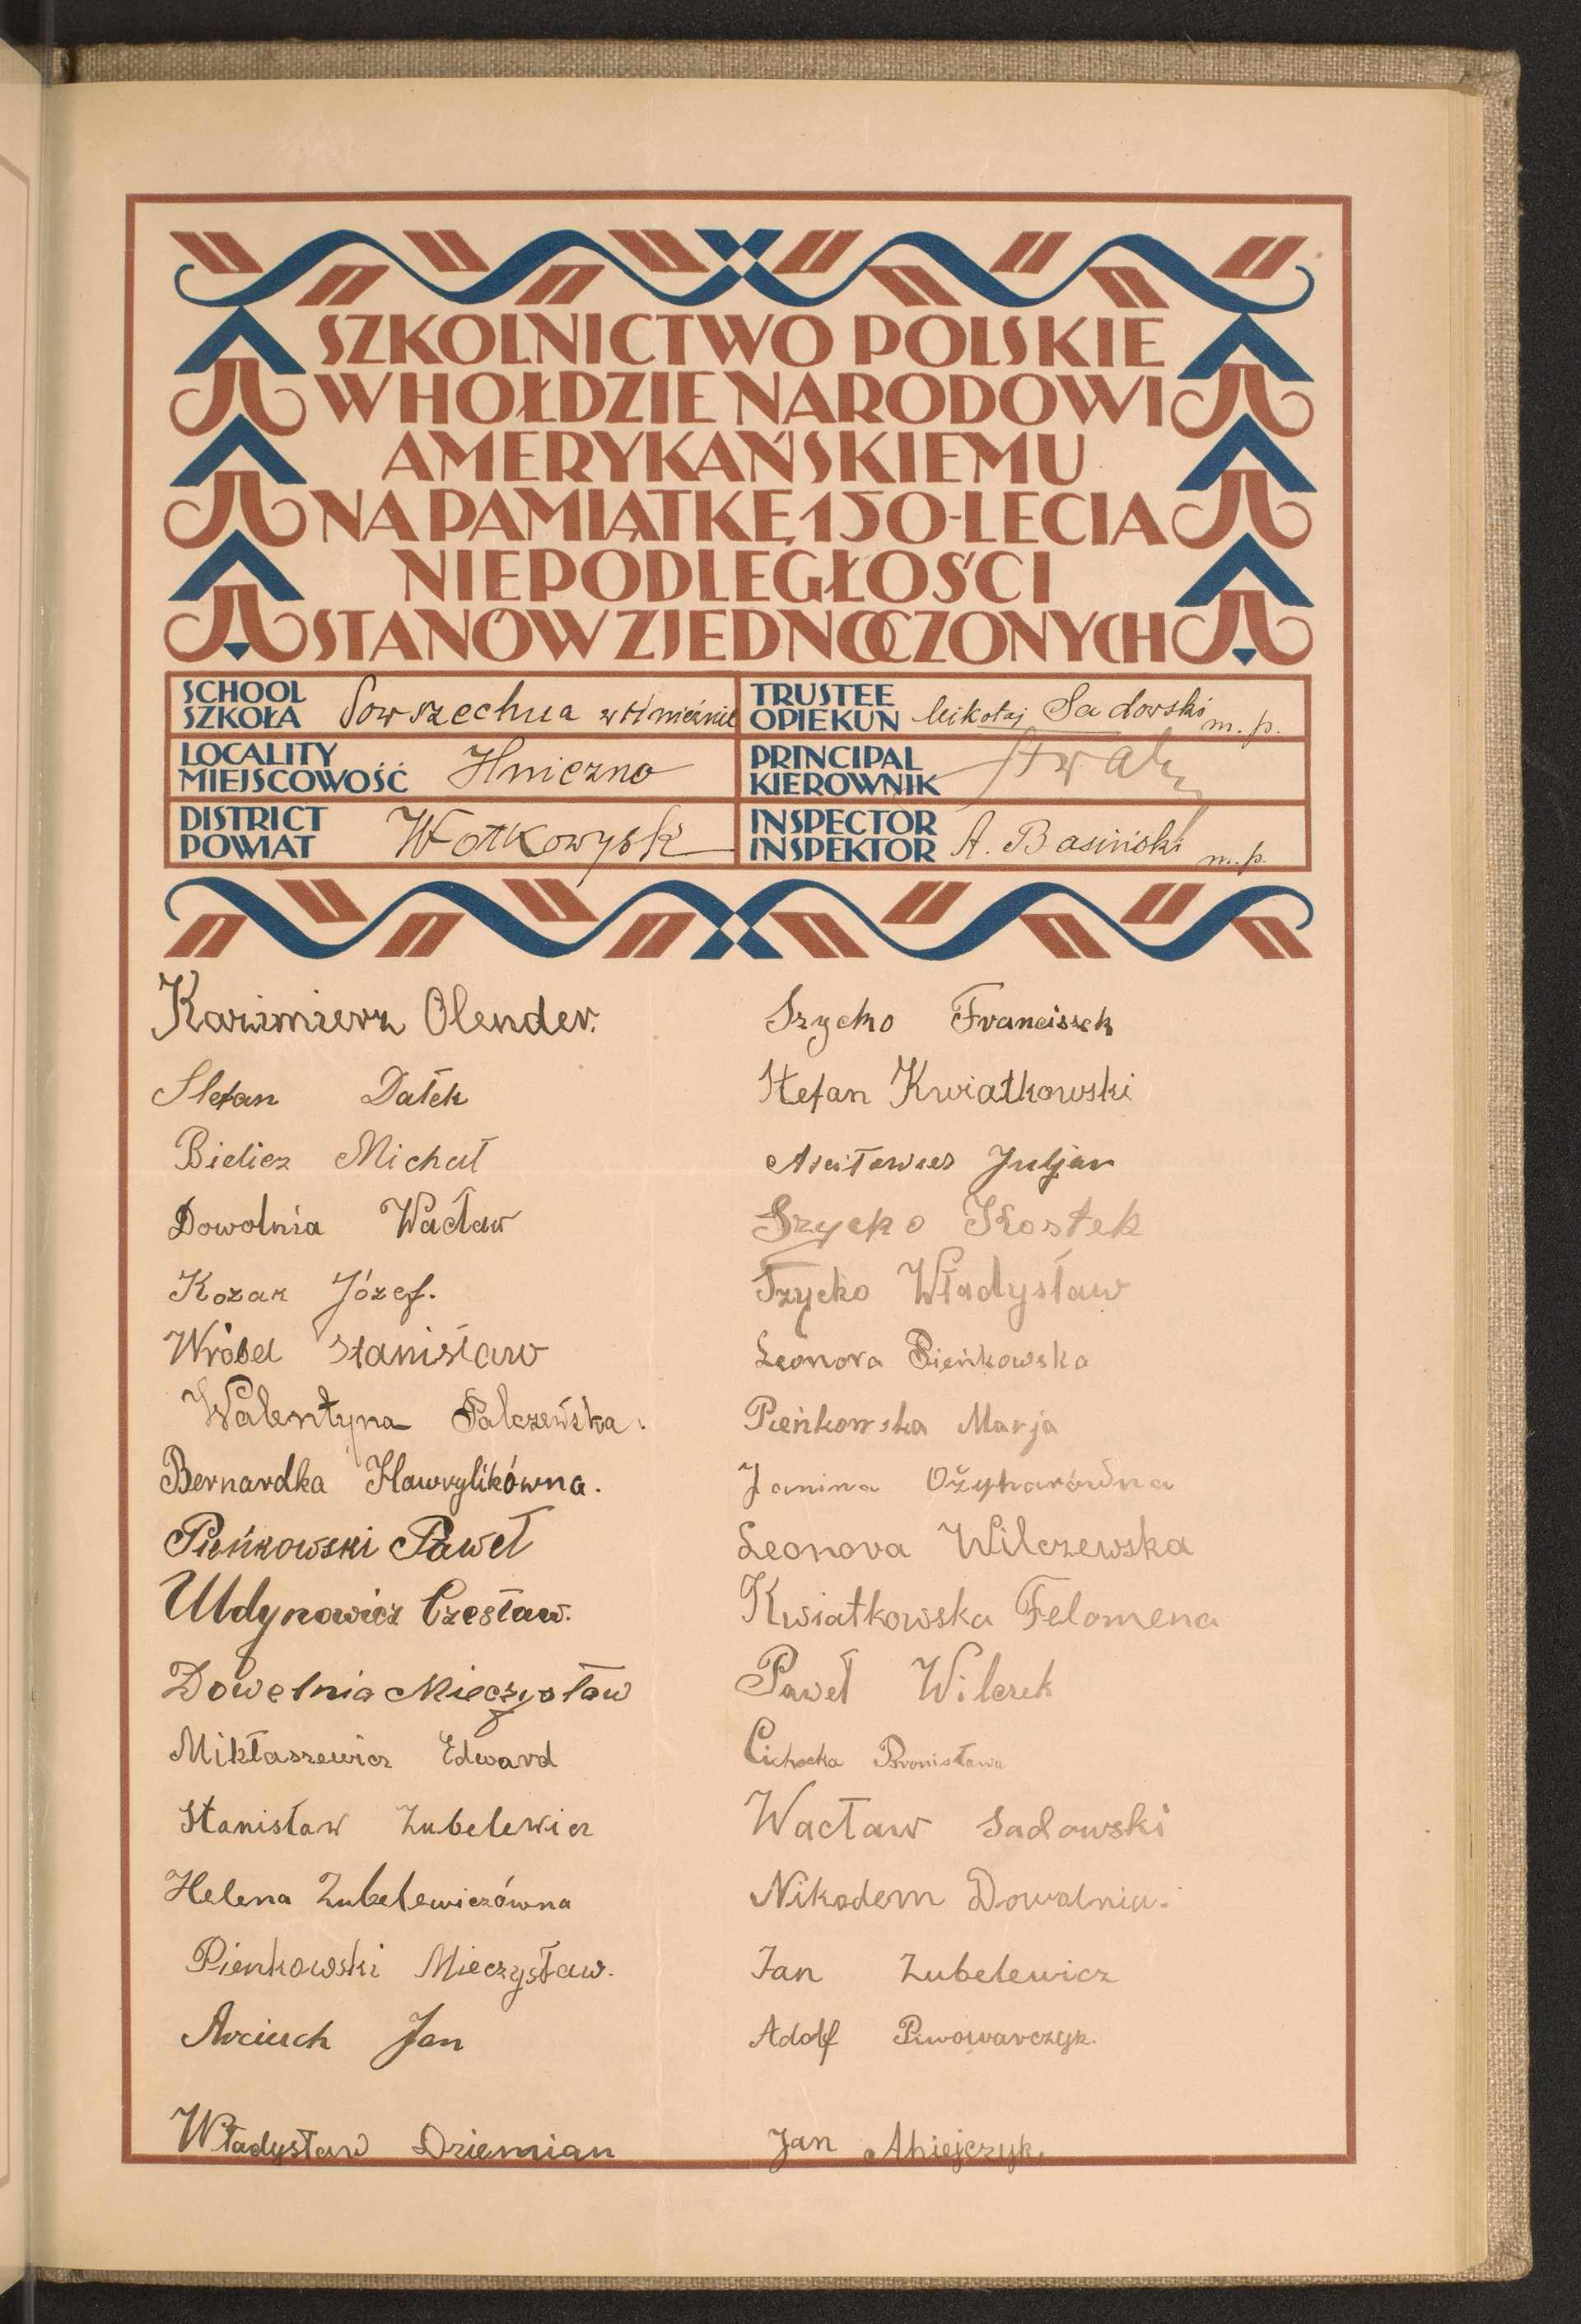 SZKOLNICTWO POLSKIE
W HOŁDZIE NARODOWI
AMERYKAŃSKIEMU
NA PAMIĄTKĘ 150-LECIA
NIEPODLEGŁOŚCI
STANÓW ZJEDNOCZONYCH
SCHOOL
SZKOŁA Powszechna w Hnieźnie
TRUSTEE
OPIEKUN Mikołaj Sadowski m. p.
LOCALITY
MIEJSCOWOŚĆ Hniezno
PRINCIPAL
KIEROWNIK
DISTRICT
POWIAT Wołkowysk
INSPECTOR
INSPEKTOR A. Basiński m. p.
Kazimierz Olender.
Stefan Dałek
Bielicz Michał
Dowolnia Wacław
Kozak Józef.
Wróbel Stanisław
Walentyna Palczewśka.
Bernardka Hawrylikówna.
Pieńkowski Paweł
Uldynowicz Czesław.
Dowolnia Mieczysław
Mikłaszewicz Edward
Stanisław Zubelewicz
Helena Zubelewiczówna
Pienkowski Mieczysław.
Arciuch Jan
Władysław Dziemian
Szycko Franciszek
Stefan Kwiatkowski
Juljan
Szycko Kostek
Szycko Władysław
Leonora Pieńkowska
Pieńkowska Marja
Janina Ożyharówna
Leonora Wilczewska
Kwiatkowska Felomena
Paweł Wilczek
Cichocka Bronisława
Wacław Sadowski
Nikodem Dowolnia.
Jan Zubelewicz
Adolf Piwowarczyk.
Jan Ahiejczyk.